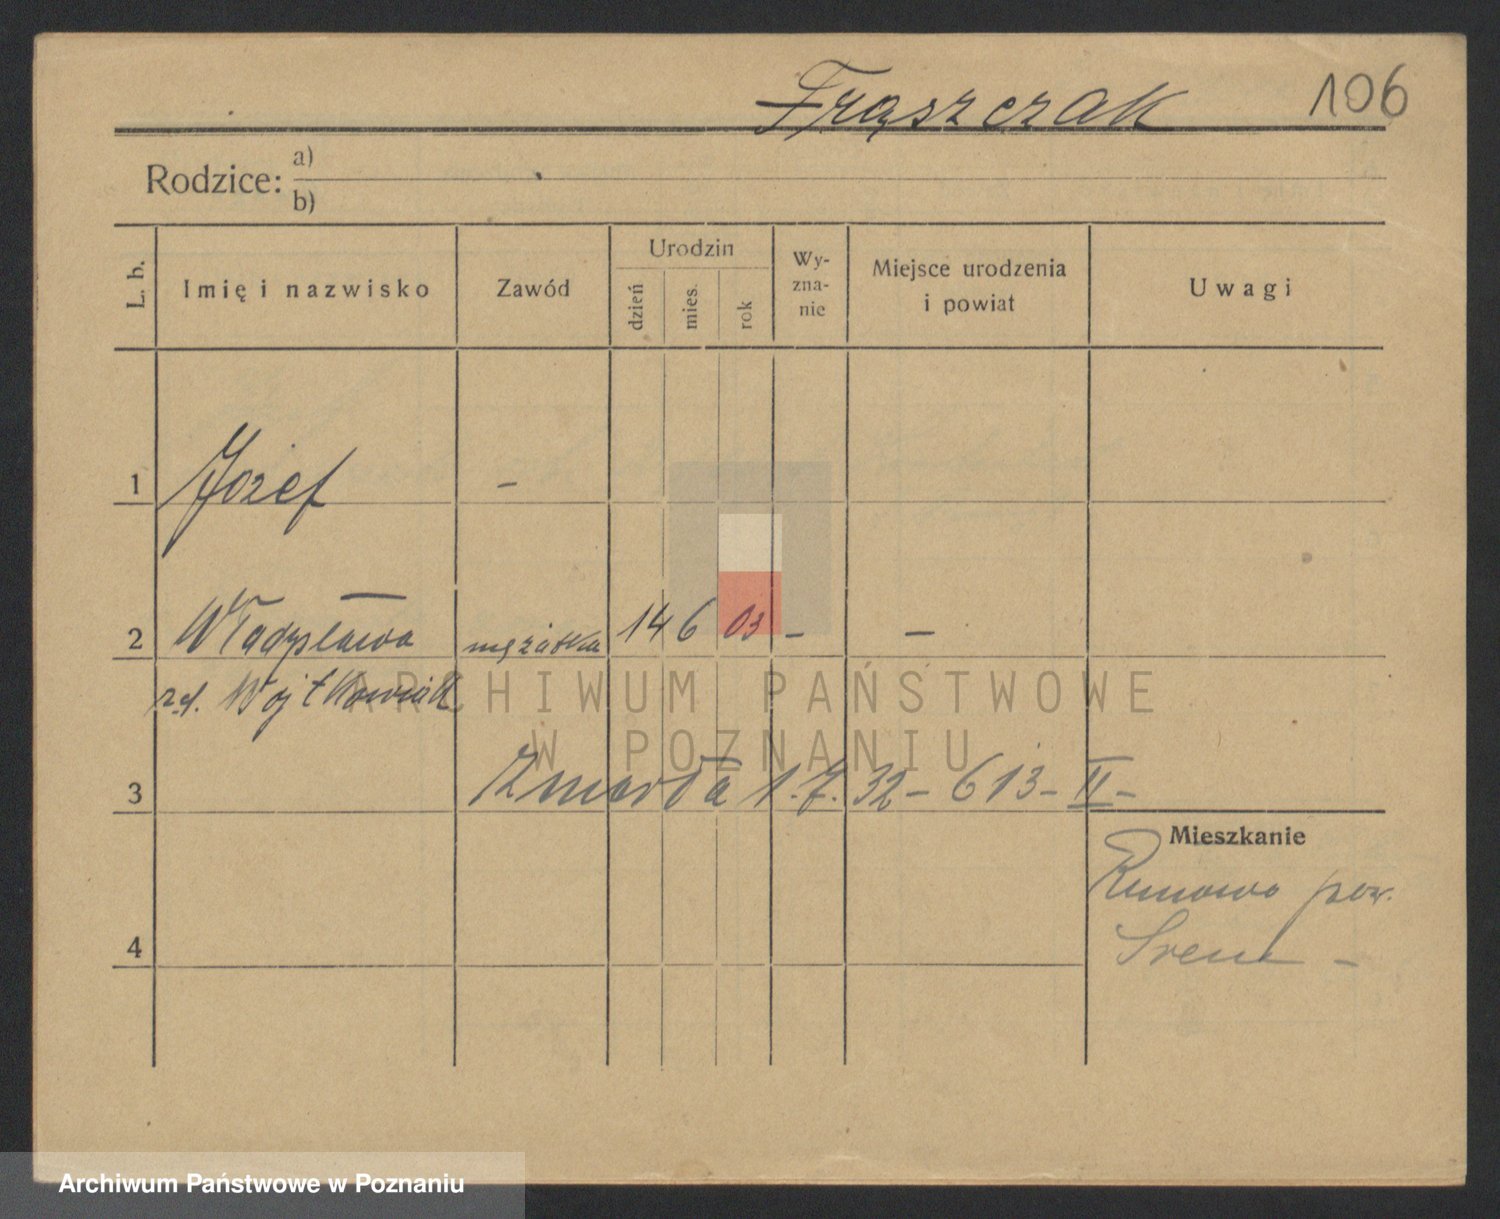 Frąszczak 106
Rodzice: a)
b)
L. b. Imię i nazwisko Zawód Urodzin dzień mies. rok Wy-zna-nie Miejsce urodzenia i powiat Uwagi
1 Józef -
2 Władysława mężatka 14 6 03 - -
Wojtkowiak
ARCHIWUM PAŃSTWOWE
W POZNANIU
3 Zmarła 1.7.32 - 613 - II -
Mieszkanie
pow.
4 Srem -
Archiwum Państwowe w Poznaniu